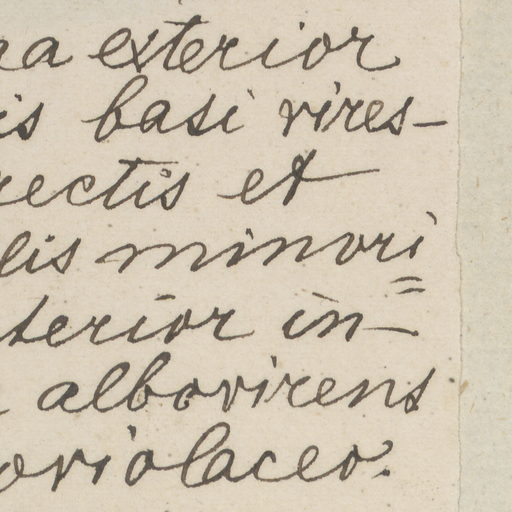 ra exterior
is basi vires-
rectis et
lis minori=
terior in-
albovirens
oviolaceo.